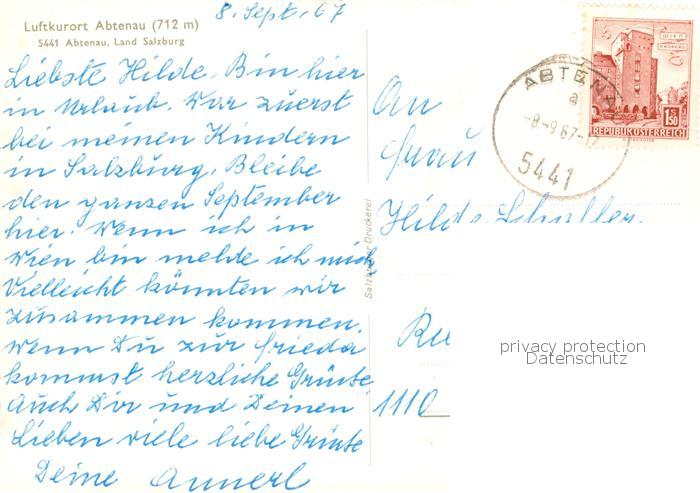 8. Sept. 67
Luftkurort Abtenau (712 m)
5441 Abtenau, Land Salzburg
Liebste Hilde. Bin hier
in Urlaub. War zuerst
bei meinen Kindern
in Salzburg. Bleibe
den ganzen September
hier. Wenn ich in
Wien bin melde ich mich
Vielleicht könnten wir
zusammen kommen.
Wenn Du zur Frieda
kommst herzliche Grüße
Auch Dir und Deinen
Lieben viele liebe Grüße
Deine Annerl
Salzburg-Druckerei
An
Frau
Hilde Schaller.
1110
WIEN
REPUBLIK ÖSTERREICH
1.50
ABTENAU
a
-8.-9.67-12
5441
privacy protection
Datenschutz